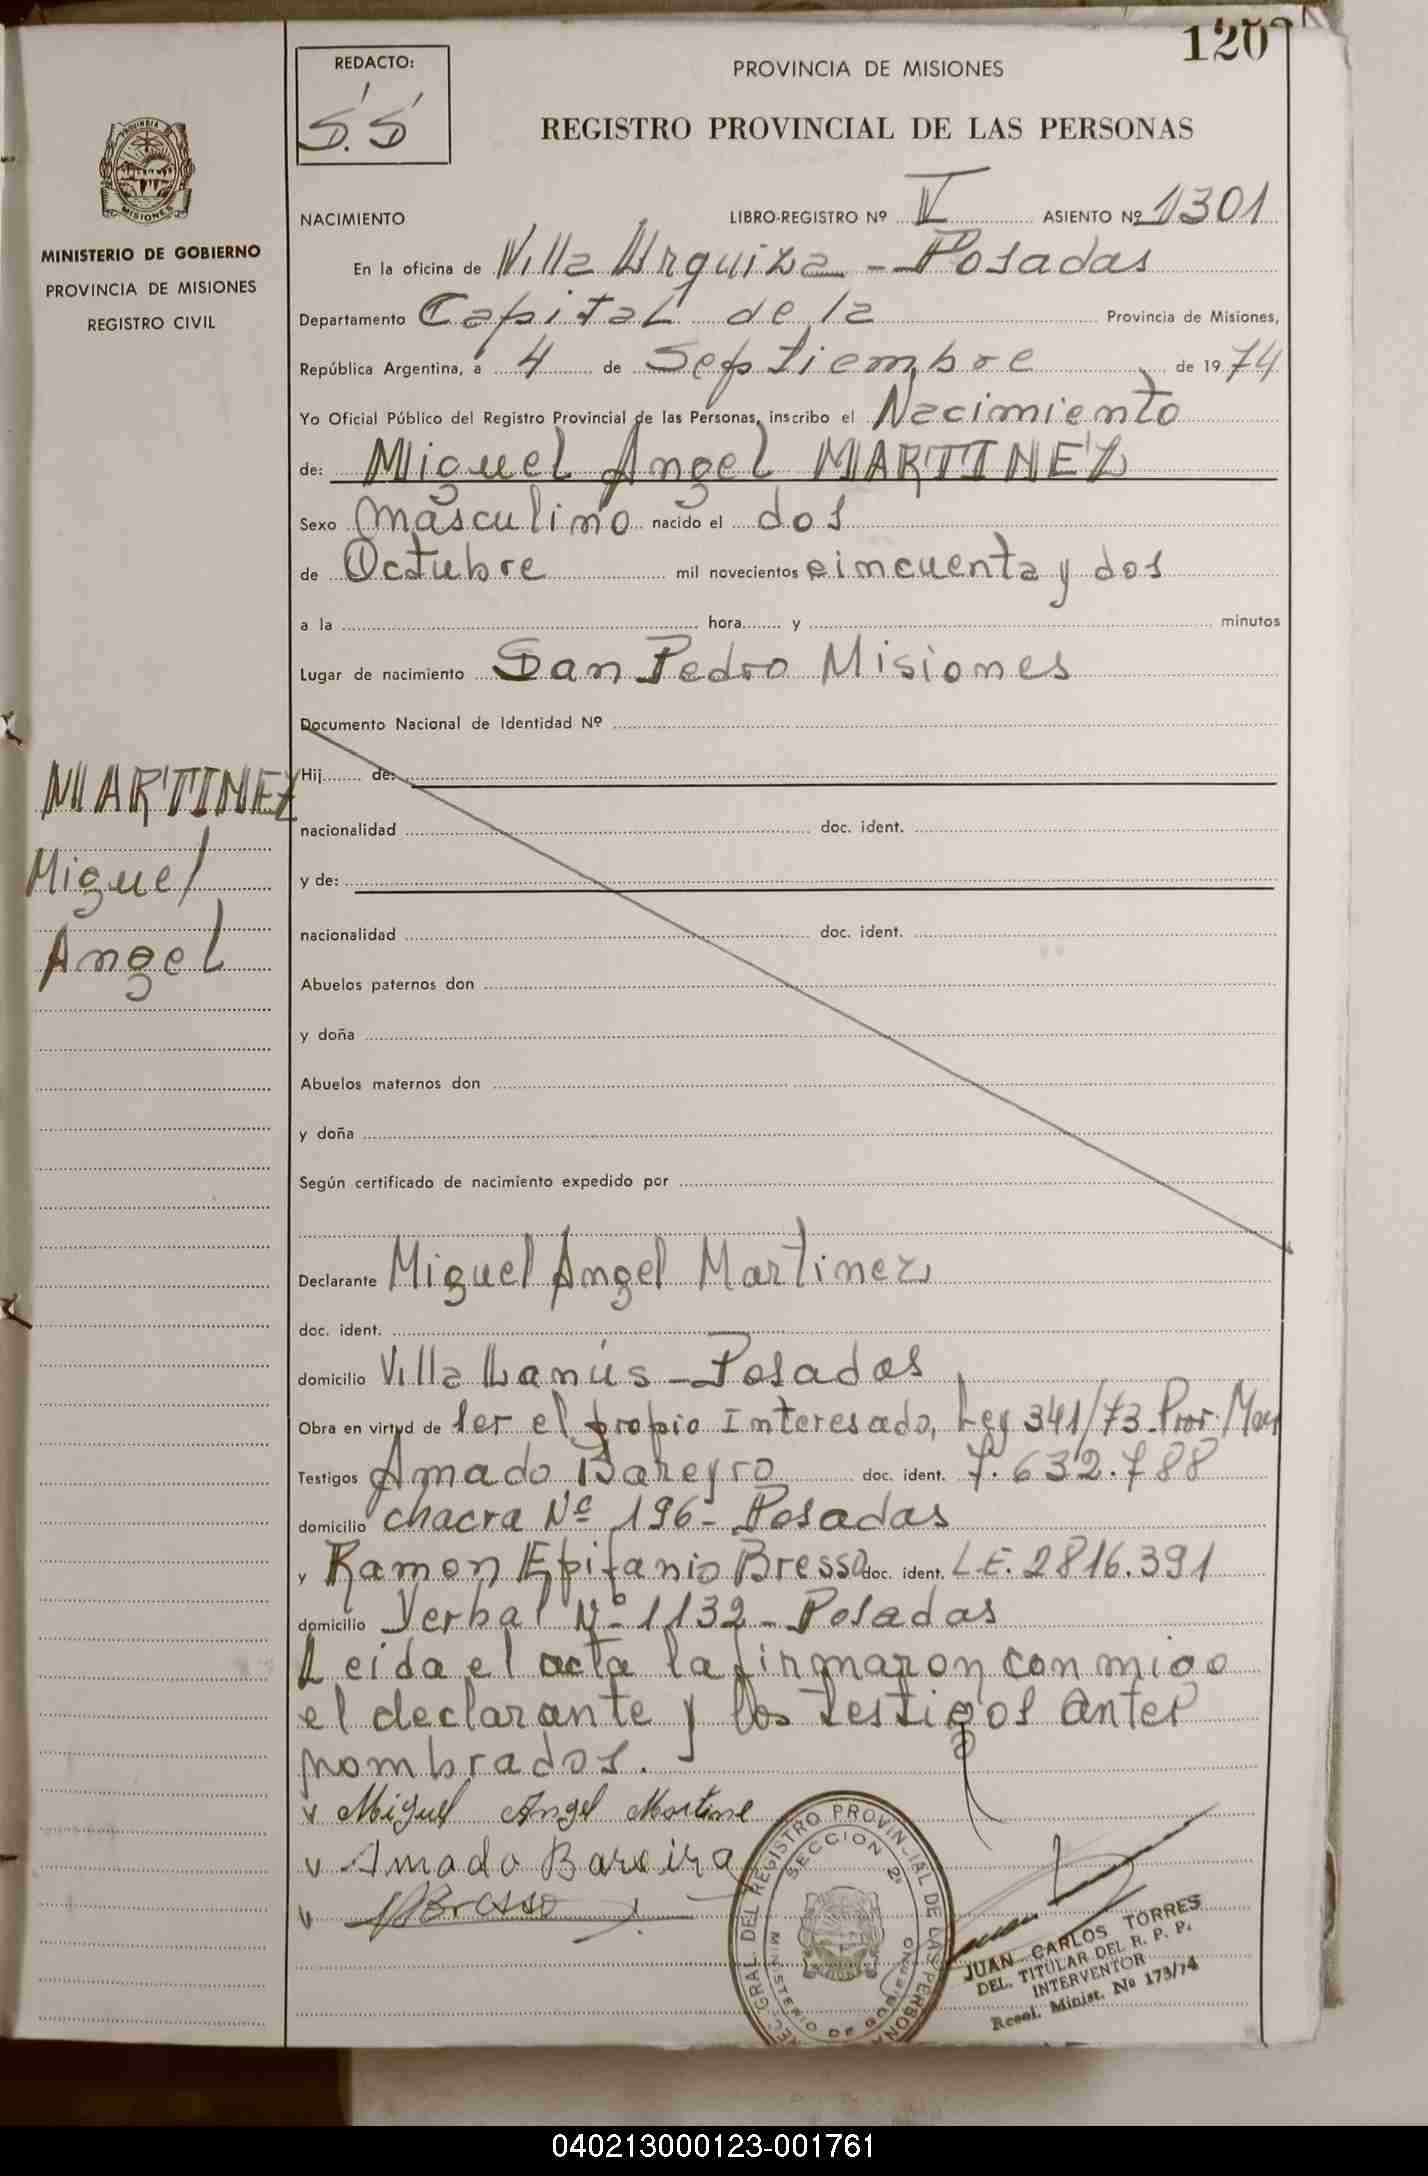 120
REDACTO:
S.S
PROVINCIA DE MISIONES
REGISTRO PROVINCIAL DE LAS PERSONAS
PROVINCIA
MISIONES
MINISTERIO DE GOBIERNO
PROVINCIA DE MISIONES
REGISTRO CIVIL
NACIMIENTO LIBRO-REGISTRO Nº V ASIENTO Nº 1301
En la oficina de Villa Urquiza - Posadas
Departamento Capital de la Provincia de Misiones,
República Argentina, a 4 de Septiembre de 1974
Yo Oficial Público del Registro Provincial de las Personas, inscribo el Nacimiento
de: Miguel Angel MARTINEZ
Sexo masculino nacido el dos
de Octubre mil novecientos cincuenta y dos
a la hora y minutos
Lugar de nacimiento San Pedro Misiones
Documento Nacional de Identidad Nº
Hij de:
nacionalidad doc. ident.
y de:
nacionalidad doc. ident.
Abuelos paternos don
y doña
Abuelos maternos don
y doña
Según certificado de nacimiento expedido por
MARTINEZ
Miguel
Angel
Declarante Miguel Angel Martinez
doc. ident.
domicilio Villa Lanús - Posadas
Obra en virtud de ser el propio Interesado, Ley 341/73. Pror.
Testigos Amado Bareyro doc. ident. 7.632.788
domicilio chacra Nº 196 - Posadas
y Ramon Epifanio Bresso doc. ident. L.E. 2816.391
domicilio Yerbal Nº 1132 - Posadas
Leida el acta la firmaron con migo
el declarante y los testigos antes
nombrados.
v Miguel Angel Martine
v Amado Bareira
v Bresso
REGISTRO PROVINCIAL DE LAS PERSONA
SECCION 2ª
MINISTERIO DE GOBIERNO
JUAN CARLOS TORRES
DEL. TITULAR DEL R. P. P.
INTERVENTOR
Resol. Minist. Nº 173/74
040213000123-001761